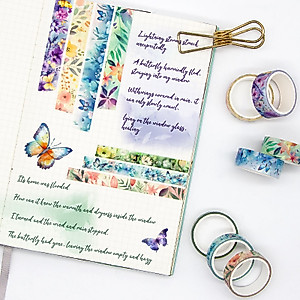 Lightning storms struck
unexpectedly.
A butterfly hurriedly fled,
stumping into my window
Withering covered in rain, it
can only slowly crawl.
lying on the window glass,
healing
Its home was flooded.
How can it know the warmth and dryness inside the window
I leaned and the wind and rain stopped.
The butterfly had gone, leaving the window empty and hazy